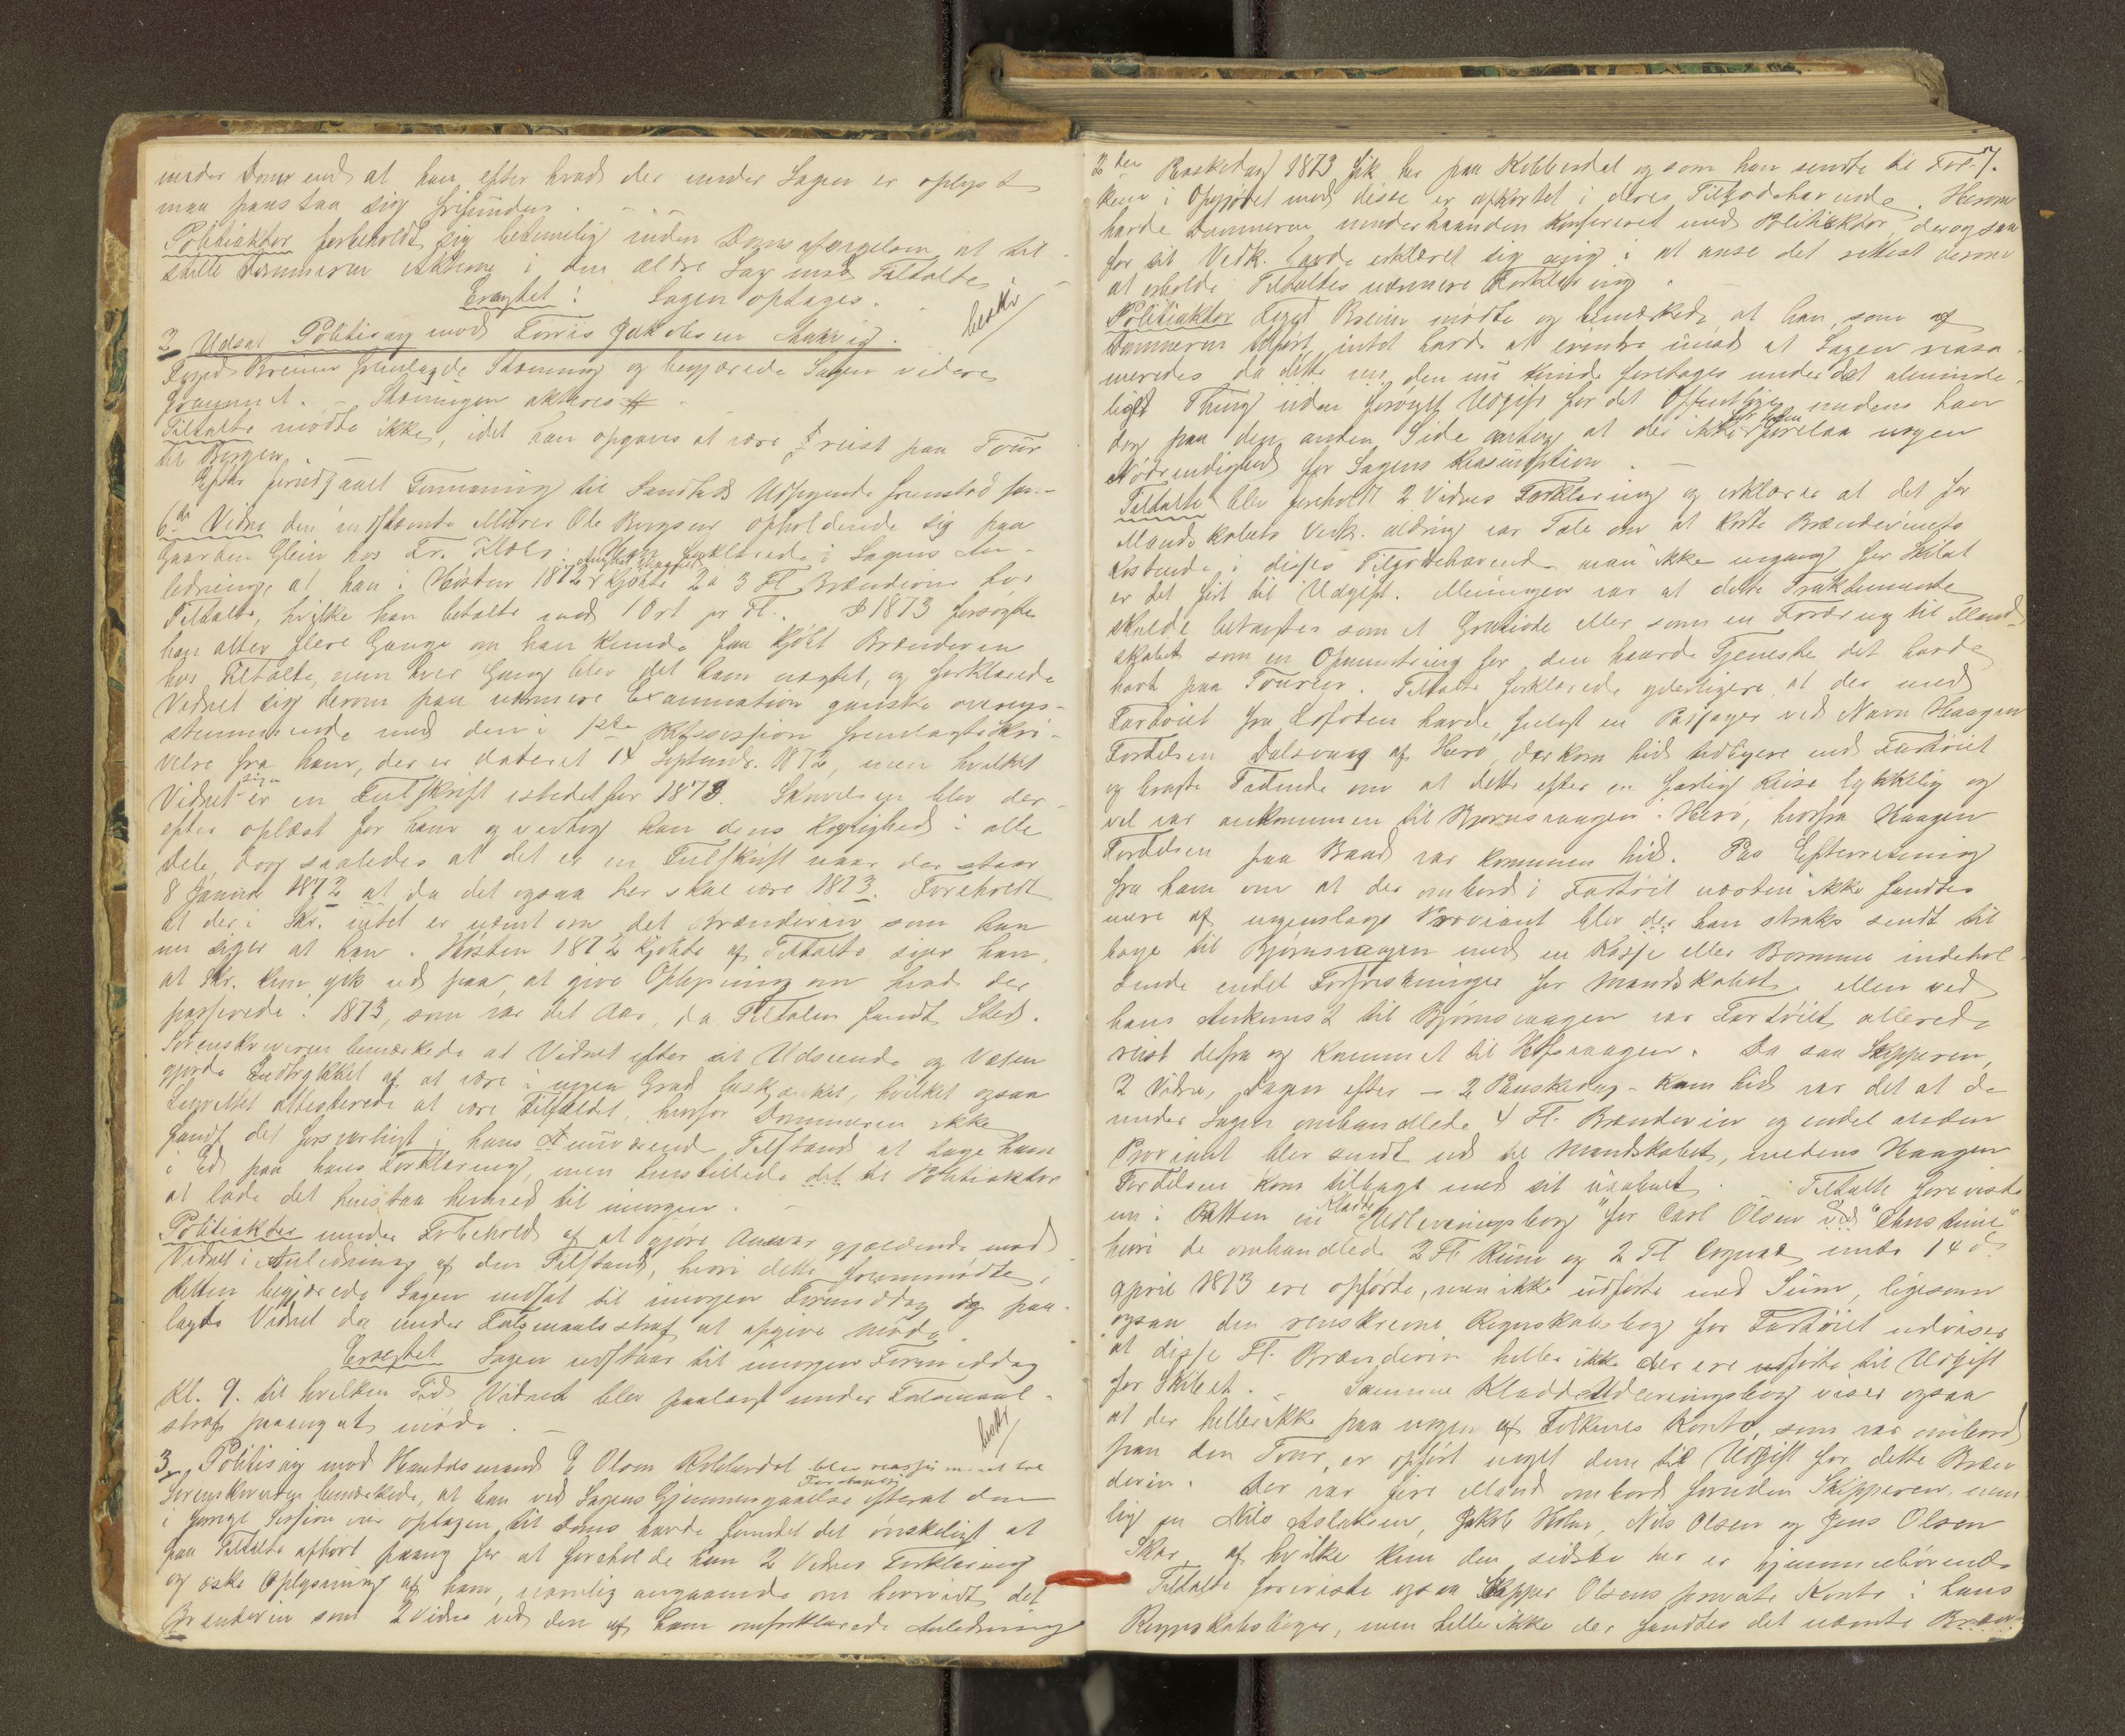 under Dom end at han efter hvad der under Sagen er oplyst
maa paastaa sig frifunden.
Politiaktor forbeholdt sig betimelig inden Doms afsigelsen at til-
stille Dommeren Akterne i den ældre Sag mod Tiltalte
Eragtet: Sagen optages.
beskr
3, Udsat Politisag mod Tørris Jakobsen
Foged Breiner fremlagde Stævning og begjærede Sagen videre
fremmet. - Stævningen akteres
Tiltalte mødte ikke, idet han opgaves at være reist paa Tour
til Bergen. -
Efter forudgaaet Tinganing til Sandheds Udsigende fremstod som
6te Vidne den indstævnte Murer Ole Bergsen opholdende sig paa
Gaarden Glein hos Fr. Klæbo. Han forklarede i Sagens An-
ledning, at han i Høsten 1872 kjøbte 2 a 3 Fl. Brændevin hos
Tiltalte, hvilke han betalte med 1 Ort pr Fl. I 1873 forsøgte
han atter flere Gange om han kunde faa kjøbt Brændevin
hos Tiltalte, men hver Gang blev det ham nægtet, og forklarede
Vidnet sig derom paa nærmere Examination ganske overens-
stemmende med den i 1ste Retssession fremlagte Skri-
velse fra ham, der er dateret 14 Septembr. 1872, men hvilket
Vidnet siger er en Feilskrift istedetfor 1873. Skrivelsen blev der-
efter oplæst for ham og vedtog han dens Rigtighed i alle
Dele, dog saaledes at det er en Feilskrift naar der staar
8 Januar 1872 at da det ogsaa her skal være 1873. Foreholdt
at der i Skr. intet er nævnt om det Brændevin som han
nu siger at han i Høsten 1872 kjøbte af Tiltalte siger han,
at Skr. kun gik ud paa at give Oplysning om hvad der
passerede i 1873, som var det Aar, da Tiltalen fandt Sted.
Sorenskriveren bemærkede at Vidnet efter sit Udseende og Væsen
gjorde Indtrykket af at være i nogen Grad beskjænket, hvilket ogsaa
Lagrettet attesterede at være Tilfældet, hvorfor Dommeren ikke
fandt det forsvarligt i hans nuværende Tilstand at tage ham
i Ed paa hans Forklaring, men henstillede det til Politiaktor
at lade det henstaa hermed til imorgen.
Politiaktor under Forbehold af at gjøre Ansvar gjældende mod
Vidnet i Anledning af den Tilstand, hvori dette fremmødte i
Retten begjærede Sagen udsat til imorgen Formiddag og paa-
lagde Vidnet da under Falsmaals straf at afgive Møde.
Eragtet Sagen udstaar til imorgen Formiddag
Kl. 9. til hvilken Tid Vidnet blev paalagt under Falsmaal-
straf paanyt at møde. -
beskr
3, Politisag mod Handelsmand E Olsen Kobberdal blev reassumeret
Sorenskriveren bemærkede, at han ved Sagens Gjennemgaaelse efterat den
i forrige Session var optagen til Doms havde fundet det ønskeligt at
faa Tiltalte afhørt paany for at foreholde ham 2 Vidnes Forklaring
og æske Oplysning af ham, nemlig angaaende om hvorvidt det
Brændevin som 2 Vidne ved den af ham omforklarede Anledning
7.
2den Paaskedag 1873 fik her paa Kobberdal og som han sendte til Fol-
kene i Opgjøret med disse er afkortet i deres Tilgodehavende. Herom
havde Dommeren underhaanden konfereret med Politiaktor, der ogsaa
for sit Vedk. havde erklæret sig enig i at anse det rettest derom
at erholde Tiltaltes nærmere Forklaring.
Politiaktor Foged Breiner mødte og bemærkede, at han, som af
Dommeren anført, intet havde at erindre imod at Sagen reasu-
meredes da dette nu den nu kunde foretages under det alminde-
lige Thing uden forøget Udgift for det Offentlige medens han
dog paa den anden Side antog at der ikke forelaa nogen
Nødvendighed for Sagens Reasumption. -
Tiltalte blev foreholdt 2 Vidnes Forklaring og erklærer at det for
Mandskabets Vedk. aldrig var Tale om at korte Brændevinets
Kostende i disses Tilgodehavende, man ikke engang for Skibet
er det ført til Udgift. Meningen var at dette Traktemente
skulde betragtes som et Gratiale eller som en Foræring til Mand-
skabet som en Opmuntring for den haarde Tjeneste det havde
havt paa Touren. Tiltalte forklarede yderligere, at der med
Fartøiet fra Lofoten havde fulgt en Passager ved Navn Haagen
Fordelsen Dalsvaag af Herø, der kom hid tidligere end Fartøiet
og bragte Tidende om at dette efter en farlig Reise lykkelig og
vel var ankommen til Bjørnsvaagen i Herø, hvorfra Haagen
Fordelsen paa Baad var kommen hid. Paa Efterretning
fra ham om at der ombord i Fartøiet næsten ikke fandtes
mere af nogenslags Proviant blev der han straks sendt til-
bage til Bjørnsvaagen med en Kasse eller Bomme indehol-
dende endel Forfriskninger for Mandskabet, men ved
hans Ankomst til Bjørnsvaagen var Fartøiet allerede
reist derfra og kommet til Hofsvaagen. Da saa Skipperen,
2 Vidne, Dagen efter - 2 Paaskedag - kom hid var det at de
under Sagen omhandlede 4 Fl. Brændevin og endel anden
Proviant blev sendt ud til Mandskabet, medens Haagen
Fordelsen kom tilbage med sit uaabnet. Tiltalte foreviste
nu i Retten en Kladde "Udleveringsbog" for Carl Olsen ved "Christine"
hvori de omhandlede 2 Fl. Rum og 2 Fl. Cognac under 14de
April 1873 ere opførte, men ikke udførte med Sum, ligesom
ogsaa den renskrevne Regnskabsbog for Fartøiet udviser
at disse Fl. Brændevin heller ikke der ere udførte til Udgift
for Skibet. - Samme Kladde Udleveringsbog viser ogsaa
at der heller ikke paa nogen af Folkenes Konto, som var ombord
paa den Tour, er opført noget dem til Udgift for dette Bræn-
devin. Der var fire Mand ombord foruden Skipperen, nem-
lig Nils Aslaksen, Jakob Holm, Nils Olsen og Jens Olsen
Skar, af hvilke kun den sidste her er hjemmehørende.
Tiltalte foreviste ogsaa Skipper Olsens private Konto i hans
Regnskabsbøger, men heller ikke der fandtes det nævnte Bræn-